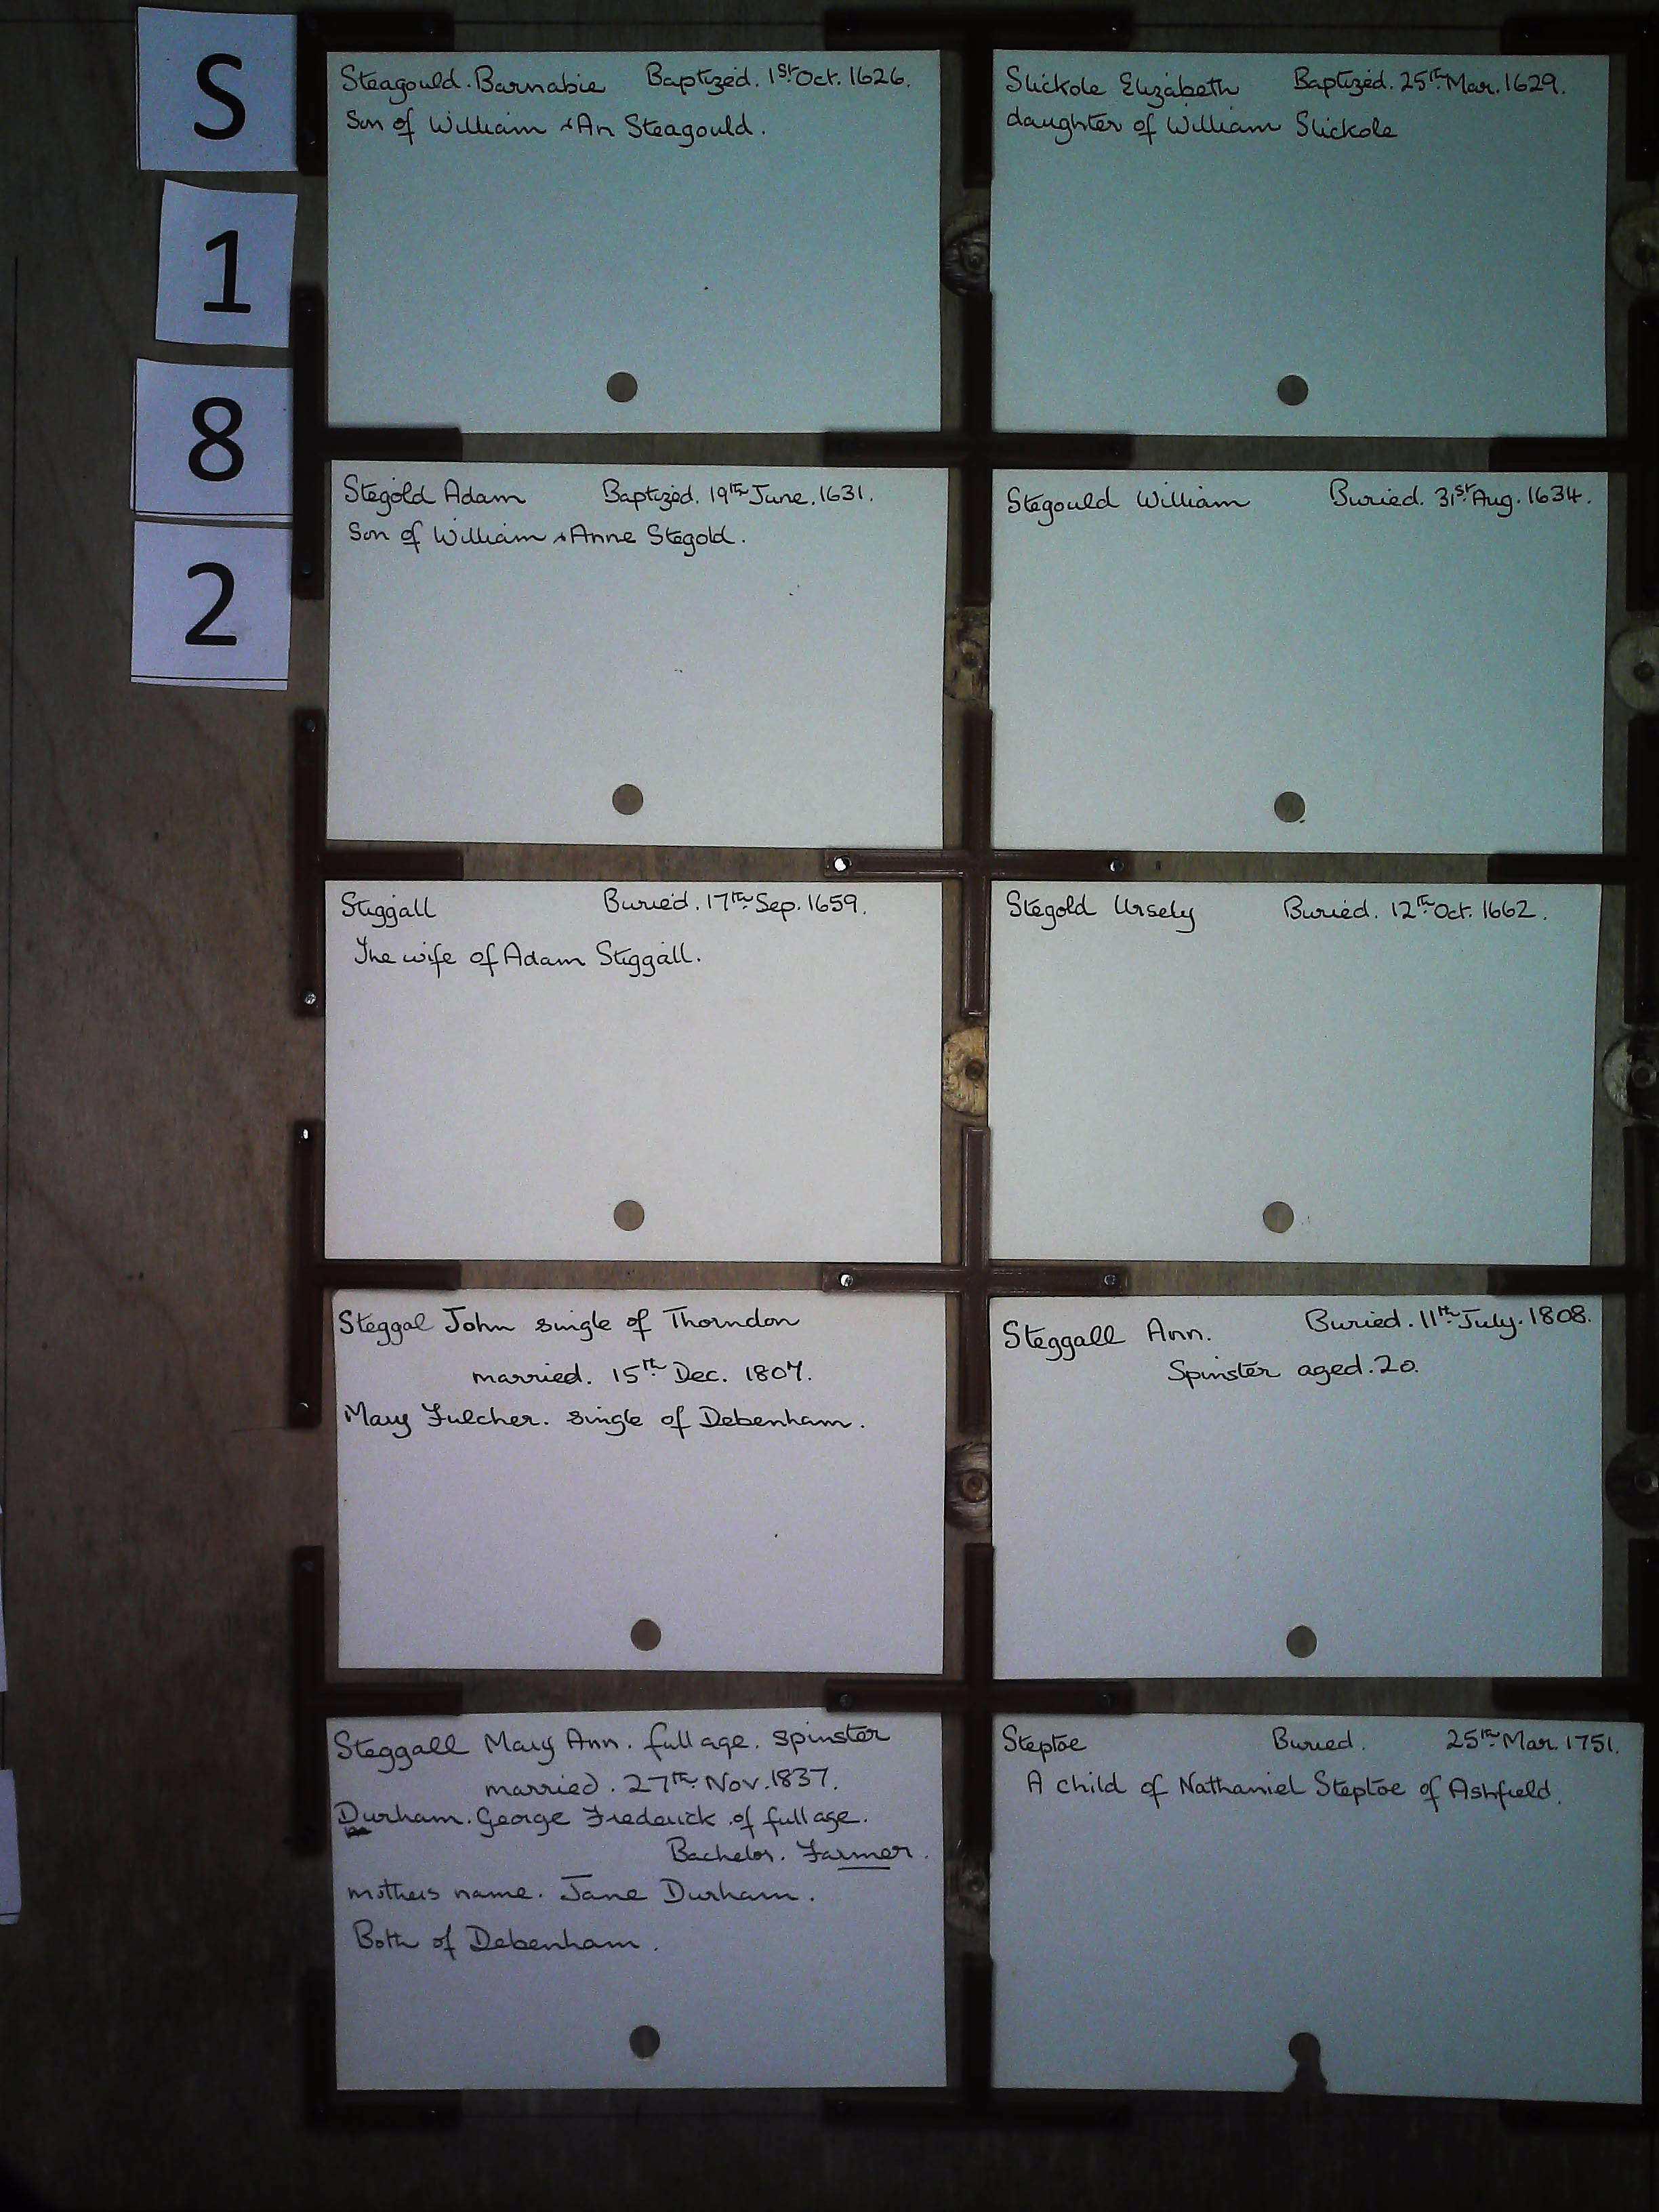 S
1
8
2
Steagould. Barnabie Baptized. 1st Oct. 1626.
Son of William & An Steagould.
Slickole Elizabeth Baptized. 25th Mar. 1629.
daughter of William Slickole
Stegold Adam Baptized. 19th June. 1631.
Son of William & Anne Stegold.
Stegould William Buried. 31st Aug. 1634.
Stiggall Buried. 17th Sep. 1659.
The wife of Adam Stiggall.
Stegold Ursely Buried. 12th Oct. 1662.
Steggal John single of Thorndon
married. 15th Dec. 1807.
Mary Fulcher. single of Debenham.
Steggall Ann. Buried. 11th July. 1808.
Spinster aged. 20.
Steggall Mary Ann. full age. spinster
married. 27th Nov. 1837.
Durham. George Frederick. of full age.
Bachelor. Farmer.
mothers name. Jane Durham.
Both of Debenham.
Steptoe Buried. 25th Mar. 1751.
A child of Nathaniel Steptoe of Ashfield.